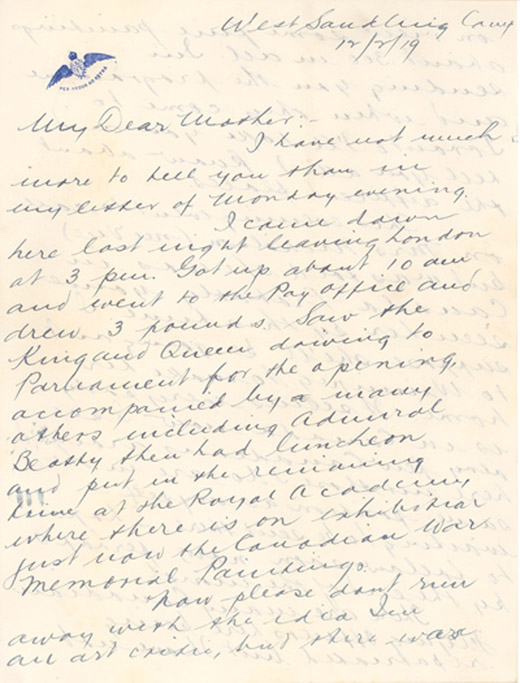 West Sandling Camp
12/2/19
PER ARDUA AD ASTRA
My Dear Mother:-
I have not much
more to tell you than in
my letter of Monday evening.
I came down
here last night leaving London
at 3 pm. Got up about 10 am
and went to the Pay Office and
drew 3 pounds. Saw the
King and Queen driving to
Parliament for the opening,
accompanied by a many
others including Admiral
Beatty then had luncheon
and put in the remaining
time at the Royal Academy
where there is on exhibition
just now the Canadian War
Memorial Paintings.
Now please don't run
away with the idea I'm
an art critic, but there was